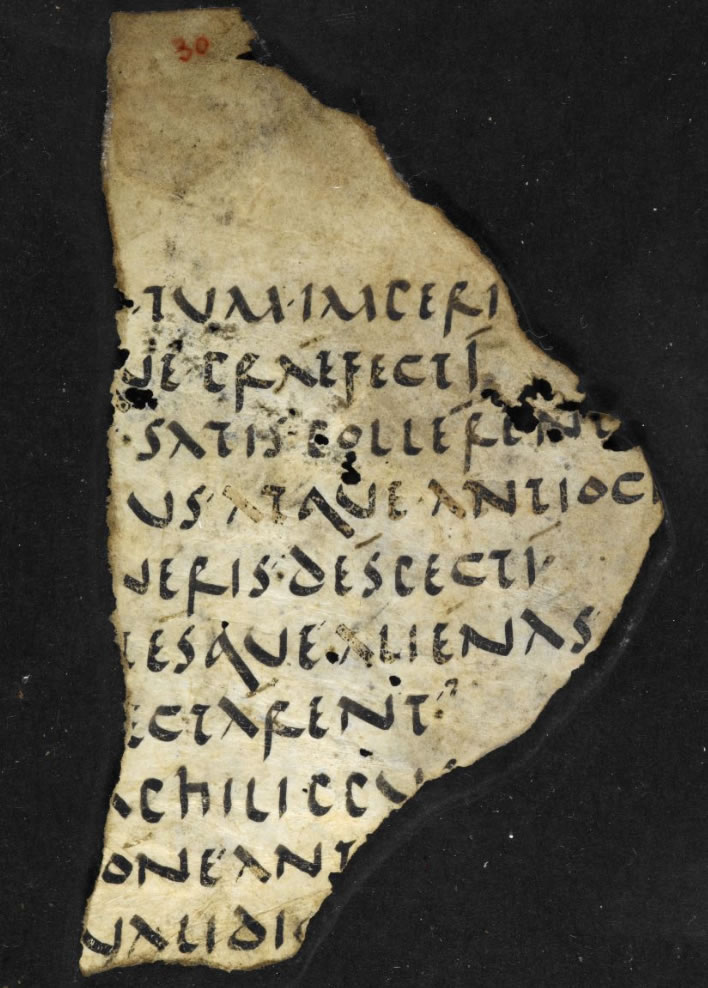 TUM·IMPERI
UE PRAEFECTI
SATIS·POLLERENT
US·ATQUE·ANTIOC
ERIS·DÉSPECTI
ESQUE·ALIENAS
ECTARENT
PHILIPPUS
ONE·ANT
UALIDI